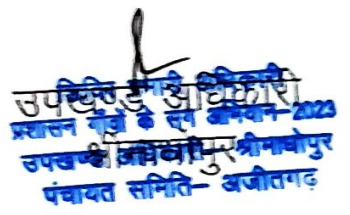 उपखण्ड अधिकारी
प्रशासन गाँवों के संग अभियान-2023
श्रीमाधोपुर
उपखण्ड श्रीमाधोपुर
पंचायत समिति- अजीतगढ़